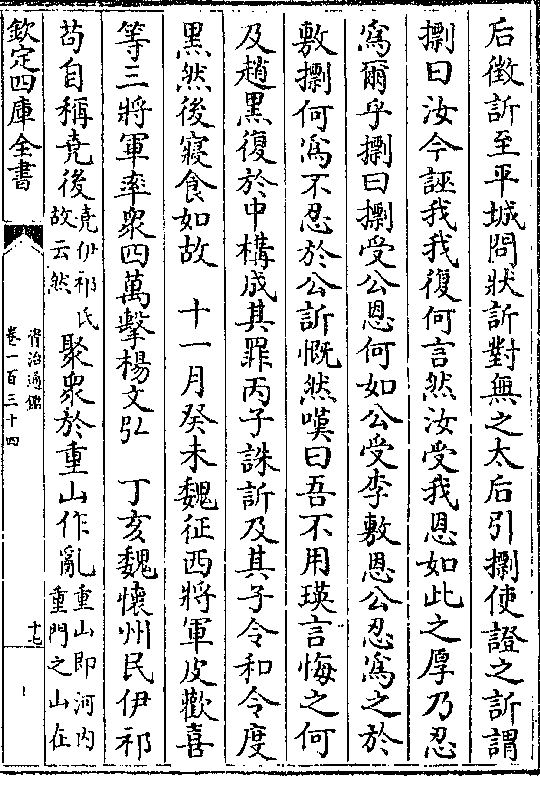 后徵訢至平城問狀訢對無之太后引摽使證之訢謂
摽曰汝今誣我我復何言然汝受我恩如此之厚乃忍
爲爾乎摽曰摽受公恩何如公受李敷恩公忍爲之於
敷摽何爲不忍於公訢慨然嘆曰吾不用瑛言悔之何
及趙黑復於中構成其罪丙子誅訢及其子令和令度
黑然後寢食如故　十一月癸未魏征西將軍皮歡喜
等三將軍率衆四萬擊楊文弘　丁亥魏懷州民伊祁
苟自稱堯後堯伊祁氏故云然聚衆於重山作亂重山即河内重門之山在
欽定四庫全書
資治通鑑
卷一百三十四
十七